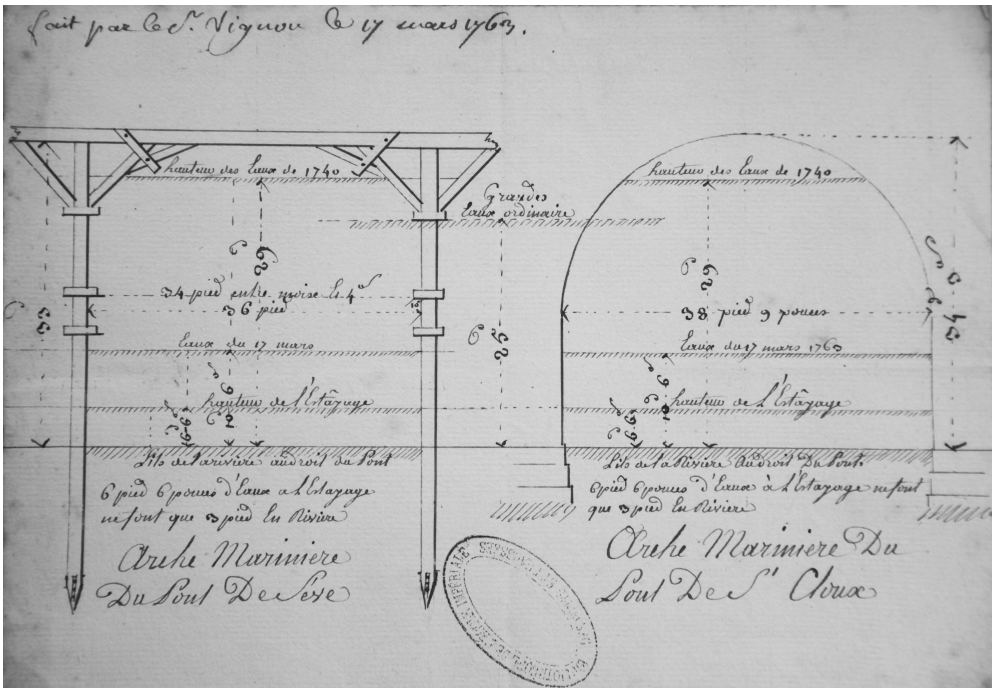 fait par le Sr. Vignon le 17 mars 1763.
hauteur des Eaux de 1740
Grandes
Eaux ordinaire
34 pied entre moise le 4d
36 pied
Eaux du 17 mars
hauteur de l'Estâyage
33 P
29 P
25 P
10 P 6
6 P 6
Lits de la rivière audroit du Pont
6 pied 6 pouces d'Eaux a l'Estayage
ne font que 3 pied En Rivière
Arche Mariniere
Du Pont De Seve
hauteur des Eaux de 1740
29 P
34 P 3
38 pied 9 pouces
Eaux du 17 mars 1763
hauteur de l'Estâyage
10 P 6
6 P 6
Lits de la Rivière Audroit Du Pont
6 pied 6 pouces d'Eaux à l'Estayage ne font
que 3 pied En Rivière
Arche Mariniere Du
Pont De St Cloux